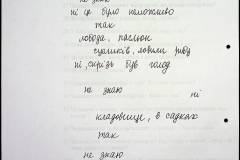 не знаю
ні це було неможливо
так
лобода, пасльон
сушили, ловили рибу
ні, скрізь був голод
не знаю
ні
кладовище, в садках
так
не знаю